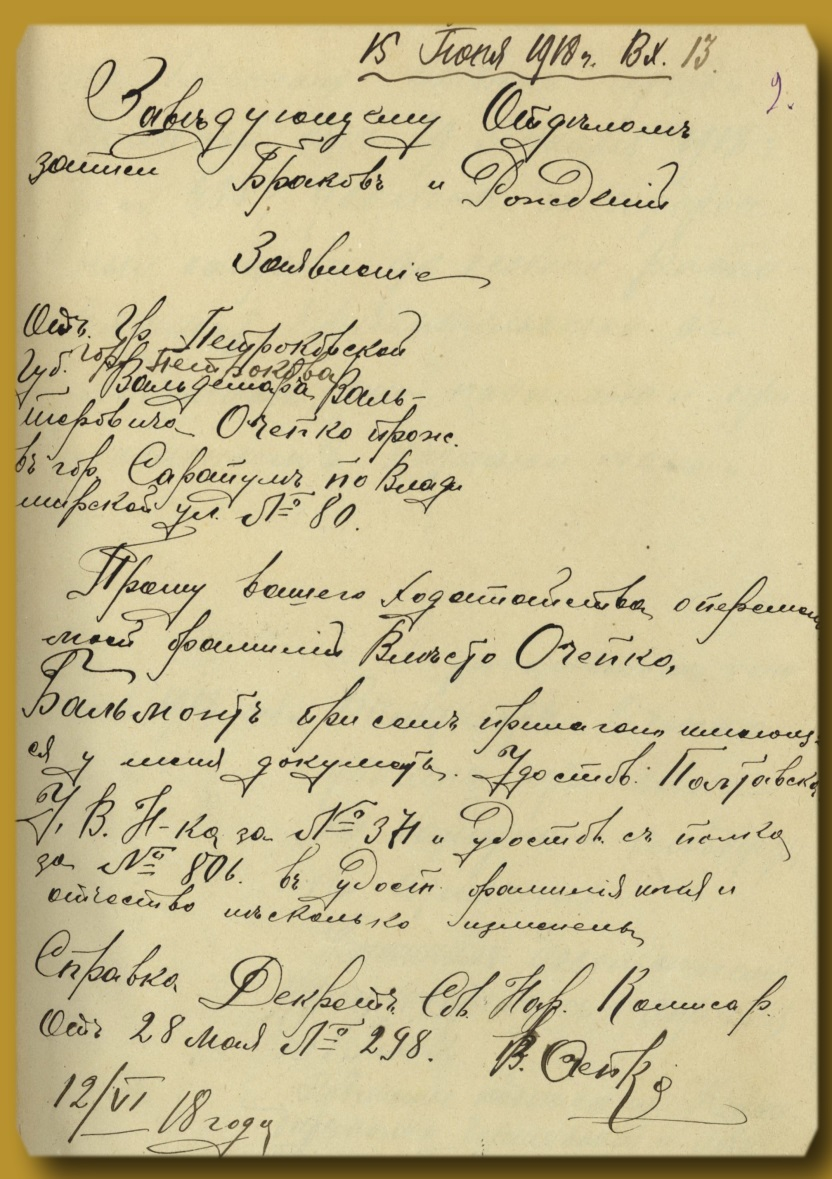 15 Июня 1918 г. Вх. 13.
2.
Завѣдующему Отдѣломъ
записи Браковъ и Рожденій
Заявленіе
Отъ Гр. Петроковской
Губ. гор. Петрокова
Вальдемара Валь-
теровича Очепко прож.
въ гор. Сарапулѣ по Влади
мирской ул. № 80.
Прошу вашего ходатайства о перемѣнѣ
моей фамиліи Вмѣсто Очепко,
Бальмонтъ при семъ прилагаю имеющі-
ся у меня документъ. Удостов. Полтавска
У. В. Н-ка за № 371 и Удостов. съ полка
за № 806. въ Удост. фамилія имя и
отчество нѣсколько измѣнены
Справка Декретъ Сов. Нар. Комисар.
Отъ 28 мая № 298. В. Очепко
12/VI 18 года